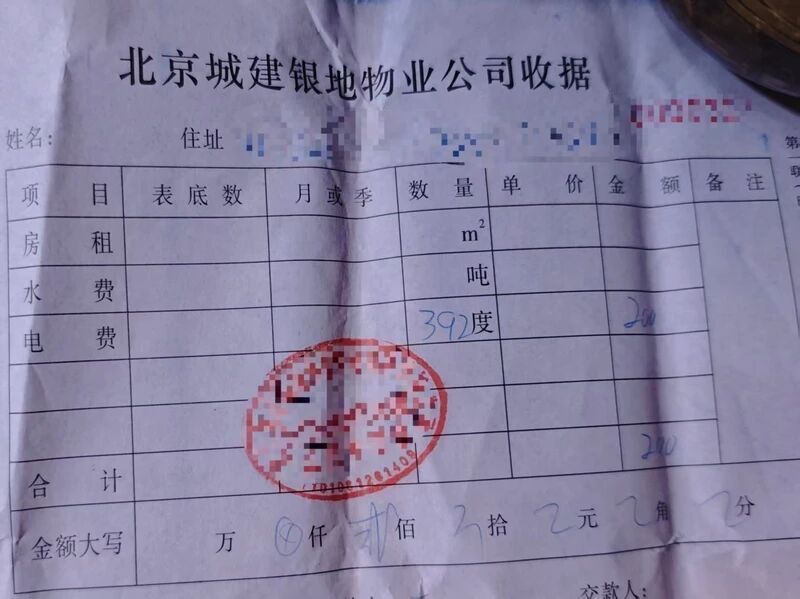 北京城建银地物业公司收据
姓名: 住址
项目 表底数 月或季 数量 单价 金额 备注
房租 m²
水费 吨
电费 392度 200
200
合计
金额大写 万 ⊗仟 贰佰 拾 元 角 分
交款人: